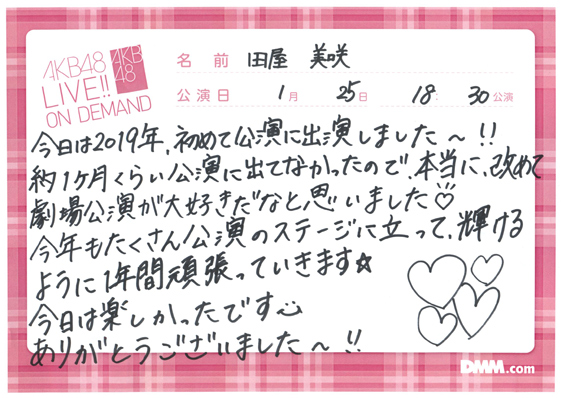 AKB48
LIVE!!
ON DEMAND
AKB
48
名前 田屋 美咲
公演日 1月 25日 18:30公演
今日は2019年、初めて公演に出演しました〜!!
約1ヶ月くらい公演に出てなかったので、本当に、改めて
劇場公演が大好きだなと思いました♡
今年もたくさん公演のステージに立って、輝ける
ように1年間頑張っていきます☆
今日は楽しかったです
ありがとうございました〜!!
DMM.com